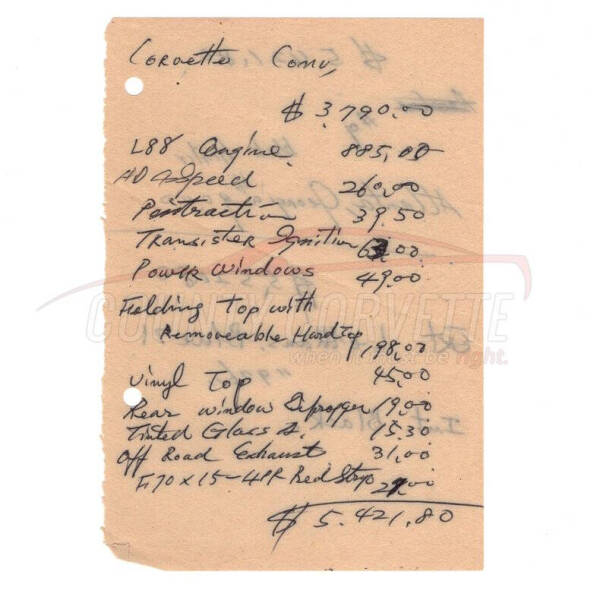 Corvette Conv,
$ 3,790.00
L88 Engine 885.00
HD 4 Speed 260.00
Positraction 39.50
Transister Ignition 63.00
Power Windows 49.00
Folding Top with
Removeable Hard Top
198.00
Vinyl Top 45.00
Rear Window Defogger 19.00
Tinted Glass 15.30
Off Road Exhaust 31.00
F70 x 15-4PR Red Stripe 27.00
$ 5,421.80
COUNTY CORVETTE
when it must be right.